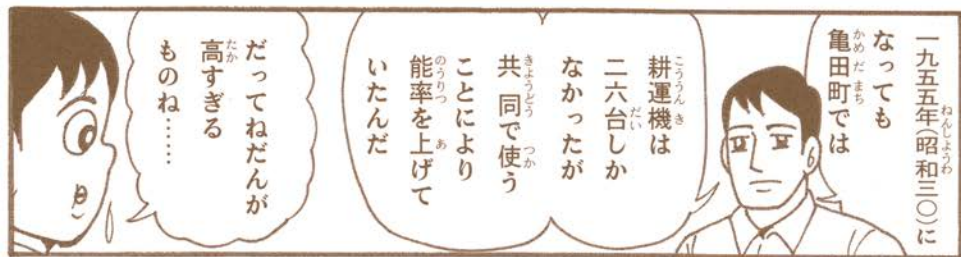 一九五五年(昭和三〇)に
なっても
亀田町では
耕運機は
二六台しか
なかったが
共同で使う
ことにより
能率を上げて
いたんだ
だってねだんが
高すぎる
ものね……